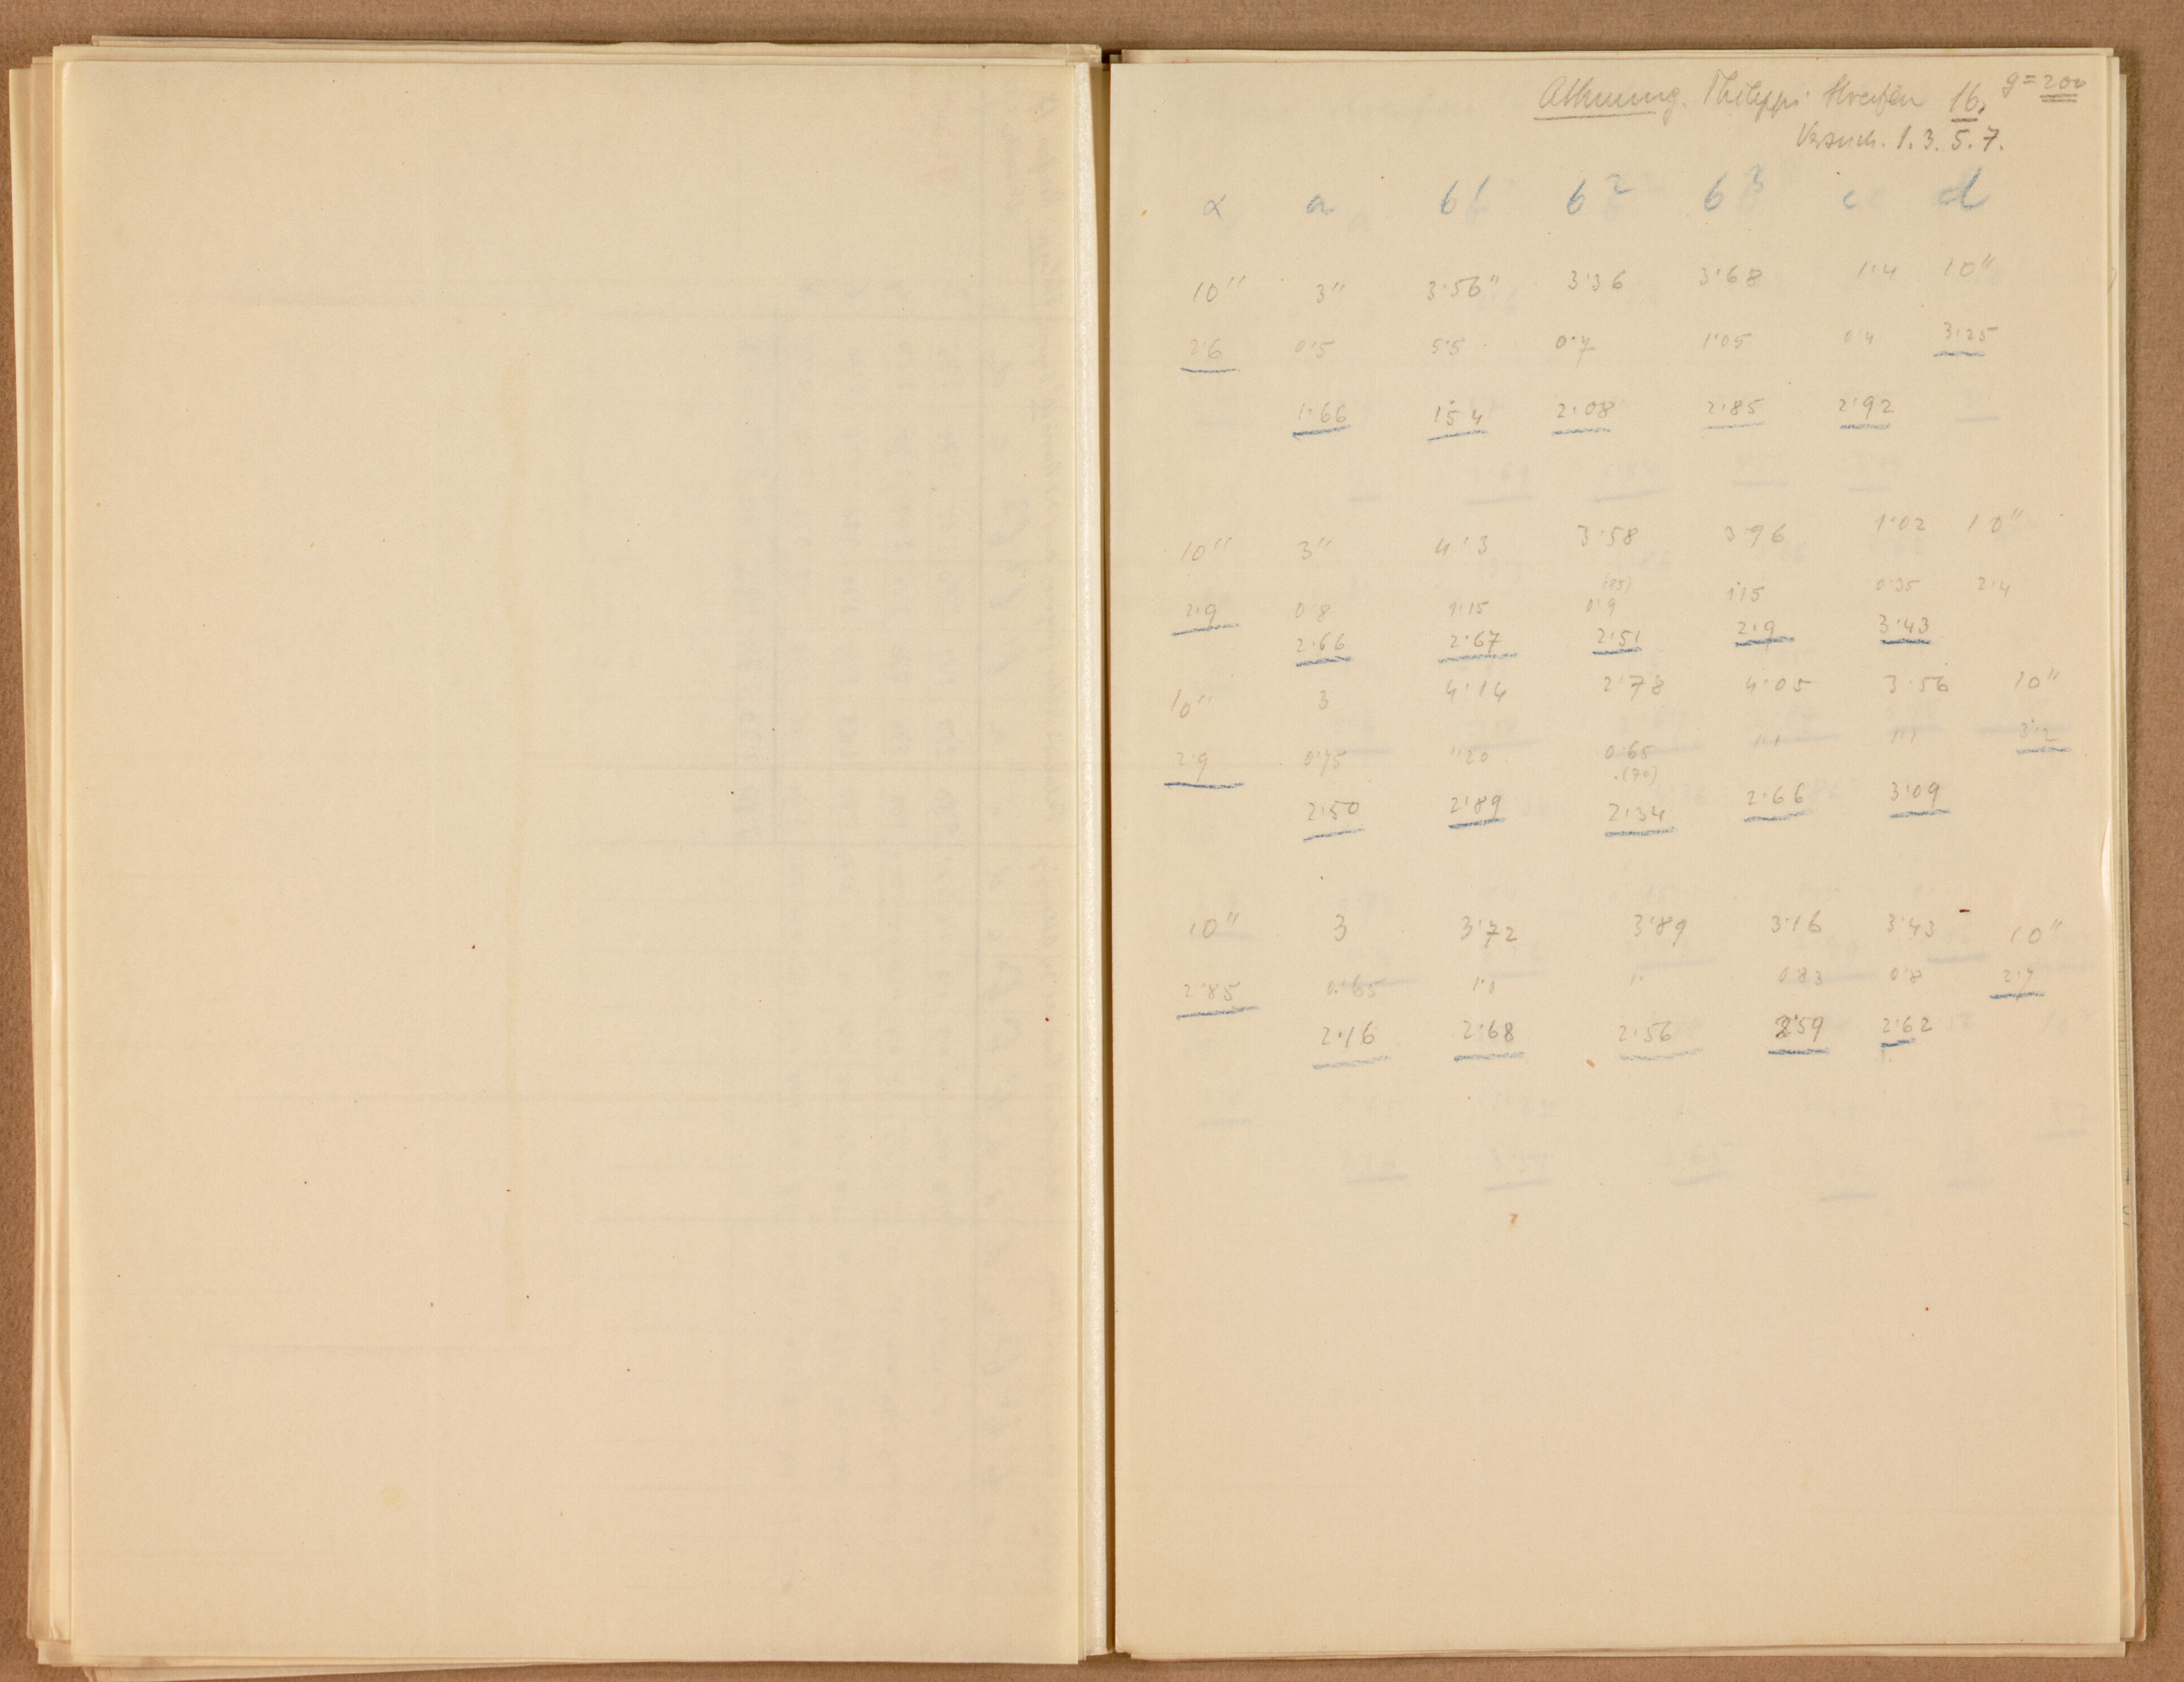 Athmung. Philippi 16. g=200
Versuch. 1. 3. 5. 7.
α a b1 b2 b3 c d
10" 3" 3·56" 3·36 3·68 1·4 10"
2·6 0·5 5·5 0·7 1·05 0·4 3·25
1·66 1·54 2·08 2·85 2·92
10" 3" 4·3 3·58 3·96 1·02 10"
(85)
2·9 0·8 1·15 0·9 1·15 0·35 2·4
2·66 2·67 2·51 2·9 3·43
10" 3 4·14 2·78 4·05 3·56 10"
2·9 0·75 1·20 0·65 1·1 1·1 3·2
(70)
2·50 2·89 2·34 2·66 3·09
10" 3 3·72 3·89 3·16 3·43 10"
2·85 0·65 1·0 1· 0·83 0·8 2·7
2·16 2·68 2·56 2·59 2·62